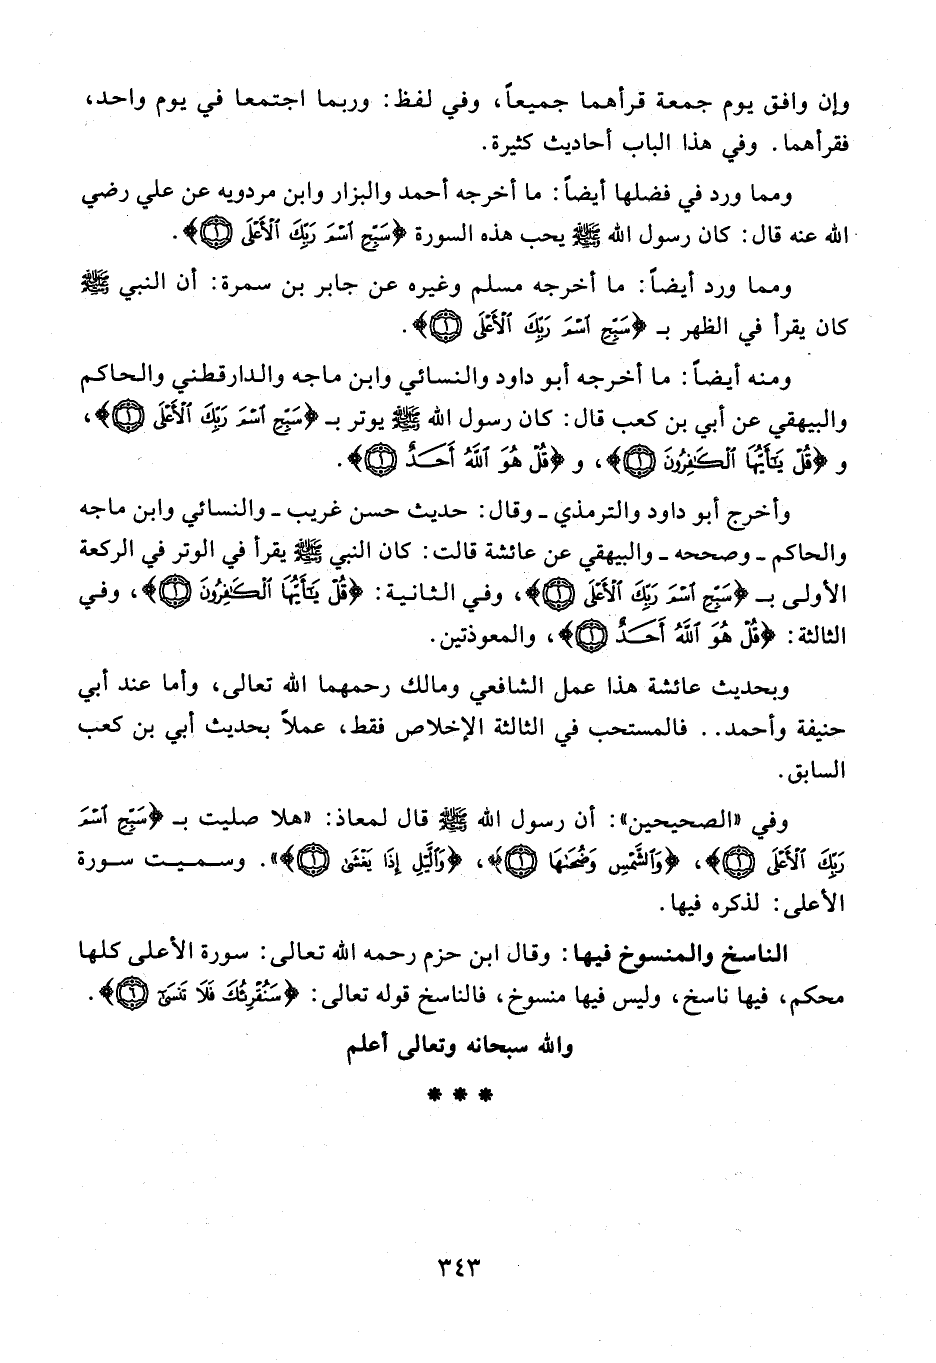 وإن وافق يوم جمعة قرأهما جميعاً، وفي لفظ: وربما اجتمعا في يوم واحد،
فقرأهما. وفي هذا الباب أحاديث كثيرة.
ومما ورد في فضلها أيضاً: ما أخرجه أحمد والبزار وابن مردويه عن علي رضي
الله عنه قال: كان رسول الله ﷺ يحب هذه السورة ﴿سَبِّحِ ٱسْمَ رَبِّكَ ٱلْأَعْلَى ۝١﴾.
ومما ورد أيضاً: ما أخرجه مسلم وغيره عن جابر بن سمرة: أن النبي ﷺ
كان يقرأ في الظهر بـ ﴿سَبِّحِ ٱسْمَ رَبِّكَ ٱلْأَعْلَى ۝١﴾.
ومنه أيضاً: ما أخرجه أبو داود والنسائي وابن ماجه والدارقطني والحاكم
والبيهقي عن أبي بن كعب قال: كان رسول الله ﷺ يوتر بـ ﴿سَبِّحِ ٱسْمَ رَبِّكَ ٱلْأَعْلَى ۝١﴾،
و ﴿قُلْ يَٰٓأَيُّهَا ٱلْكَٰفِرُونَ ۝١﴾، و ﴿قُلْ هُوَ ٱللَّهُ أَحَدٌ ۝١﴾.
وأخرج أبو داود والترمذي ـ وقال: حديث حسن غريب ـ والنسائي وابن ماجه
والحاكم ـ وصححه ـ والبيهقي عن عائشة قالت: كان النبي ﷺ يقرأ في الوتر في الركعة
الأولى بـ ﴿سَبِّحِ ٱسْمَ رَبِّكَ ٱلْأَعْلَى ۝١﴾، وفي الثانية: ﴿قُلْ يَٰٓأَيُّهَا ٱلْكَٰفِرُونَ ۝١﴾، وفي
الثالثة: ﴿قُلْ هُوَ ٱللَّهُ أَحَدٌ ۝١﴾، والمعوذتين.
وبحديث عائشة هذا عمل الشافعي ومالك رحمهما الله تعالى، وأما عند أبي
حنيفة وأحمد.. فالمستحب في الثالثة الإخلاص فقط، عملاً بحديث أبي بن كعب
السابق.
وفي «الصحيحين»: أن رسول الله ﷺ قال لمعاذ: «هلا صليت بـ ﴿سَبِّحِ ٱسْمَ
رَبِّكَ ٱلْأَعْلَى ۝١﴾، ﴿وَٱلشَّمْسِ وَضُحَىٰهَا ۝١﴾، ﴿وَٱلَّيْلِ إِذَا يَغْشَىٰ ۝١﴾». وسميت سورة
الأعلى: لذكره فيها.
الناسخ والمنسوخ فيها: وقال ابن حزم رحمه الله تعالى: سورة الأعلى كلها
محكم، فيها ناسخ، وليس فيها منسوخ، فالناسخ قوله تعالى: ﴿سَنُقْرِئُكَ فَلَا تَنسَىٰٓ ۝٦﴾.
والله سبحانه وتعالى أعلم
* * *
٣٤٣